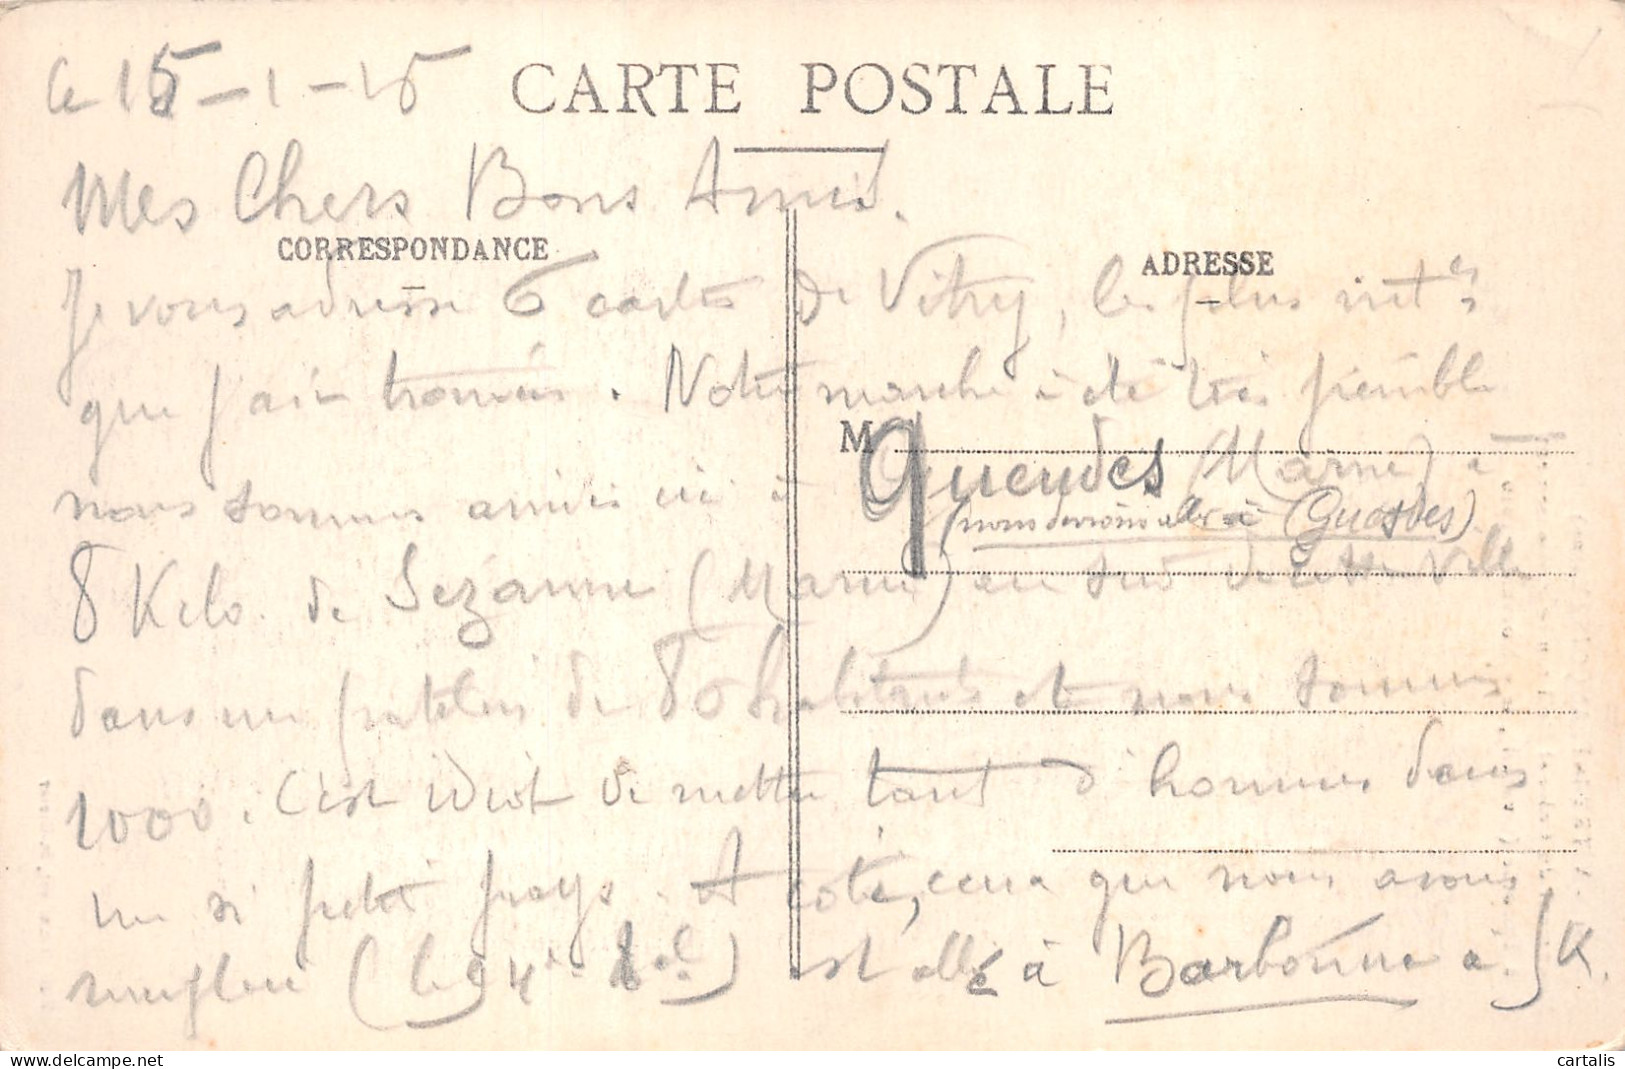 le 15-1-15
CARTE POSTALE
Mes Chers Bons Amis.
CORRESPONDANCE
ADRESSE
Je vous adresse 6 cartes de Vitry, les plus intes
que j'ai trouvées. Notre marche a été très pénible
M
nous sommes arrivés ici à Queudes (Marne) à
(nous devrions aller à (Guesdes)
8 Kilo. de Sézanne (Marne) au sud de cette ville
dans un patelin de 80 habitants et nous sommes
1000. C'est idiot de mettre tant d'hommes dans
un si petit pays. A côté, ceux que nous avons
(le 94e) est allé à Barbonne à 5K.
cartalis